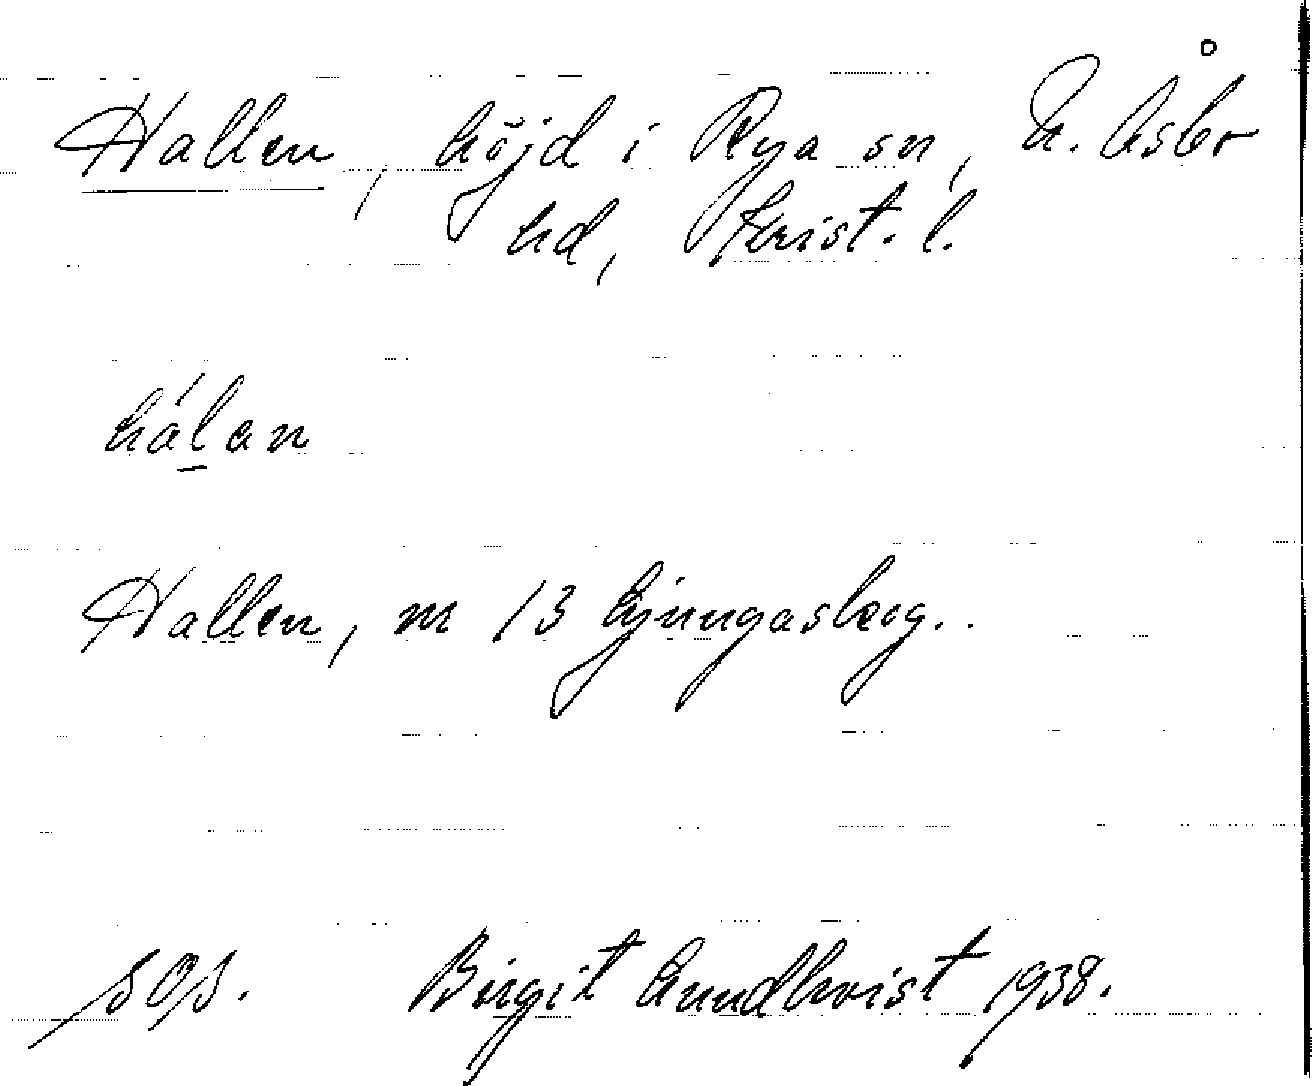 Hallen, höjd i Rya sn, N. Åsbo
hd, Krist. l.
hálan
Hallen, m 13 Ljungaskog..
SOS. Birgit Lundkvist 1938.